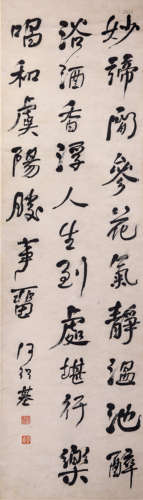 妙諦閒參花氣靜溫池醉
浴酒香浮人生到處堪行樂
唱和虞陽勝事畱 何紹基